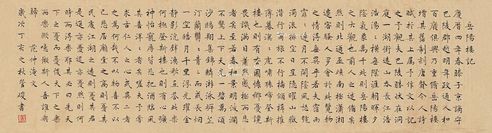 岳陽樓記
慶曆四年春滕子京謫守
巴陵郡越明年政通人和
百廢具興乃重修岳陽樓
增其舊制刻唐賢今人詩
賦于其上屬予作文以記
之予觀夫巴陵勝狀在洞
庭一湖銜遠山吞長江浩
浩湯湯橫無際涯朝暉夕
陰氣象萬千此則岳陽樓
之大觀也前人之述備矣
然則北通巫峽南極瀟湘
遷客騷人多會於此覽物
之情得無異乎若夫霪雨
霏霏連月不開陰風怒號
濁浪排空日星隱曜山岳
潛形商旅不行檣傾楫摧
薄暮冥冥虎嘯猿啼登斯
樓也則有去國懷鄉憂讒
畏譏滿目蕭然感極而悲
者矣至若春和景明波瀾
不驚上下天光一碧萬頃
沙鷗翔集錦鱗游泳岸芷
汀蘭郁郁青青而或長煙
一空皓月千里浮光躍金
靜影沉璧漁歌互答此樂
何極登斯樓也則有心曠
神怡寵辱偕忘把酒臨風
其喜洋洋者矣嗟夫予嘗
求古仁人之心或異二者
之為何哉不以物喜不以
己悲居廟堂之高則憂其
民處江湖之遠則憂其君
是進亦憂退亦憂然則何
時而樂耶其必曰先天下之憂
而憂後天下之樂而樂乎噫微斯人吾誰與
歸 范仲淹文
歲次丁亥之秋 書